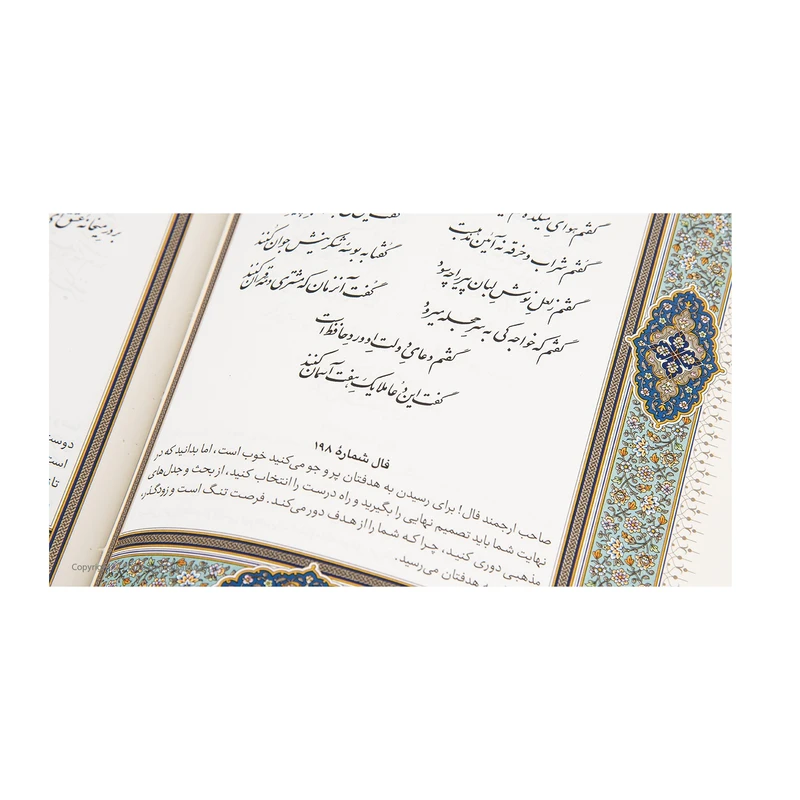 بر در میخانهٔ عشق ای
گفتم هوای میکده غم
گفتم شراب و خرقه نه آئین مذهبست
گفتم ز لعل نوش لبان پیر را چه سود
گفتا به بوسهٔ شکرینش جوان کنند
گفتم که خواجه کی به سر حجله میرود
گفت آن زمان که مشتری و مه قران کنند
گفتم دعای دولت او ورد حافظ است
گفت این دعا ملایک هفت آسمان کنند
فال شمارهٔ ۱۹۸
صاحب ارجمند فال! برای رسیدن به هدفتان پر و جو می‌کنید خوب است، اما بدانید که در
نهایت شما باید تصمیم نهایی را بگیرید و راه درست را انتخاب کنید، از بحث و جدل‌های
مذهبی دوری کنید، چرا که شما را از هدف دور می‌کند. فرصت تنگ است و زودگذر،
به هدفتان می‌رسید.
دوست
است
Copyright